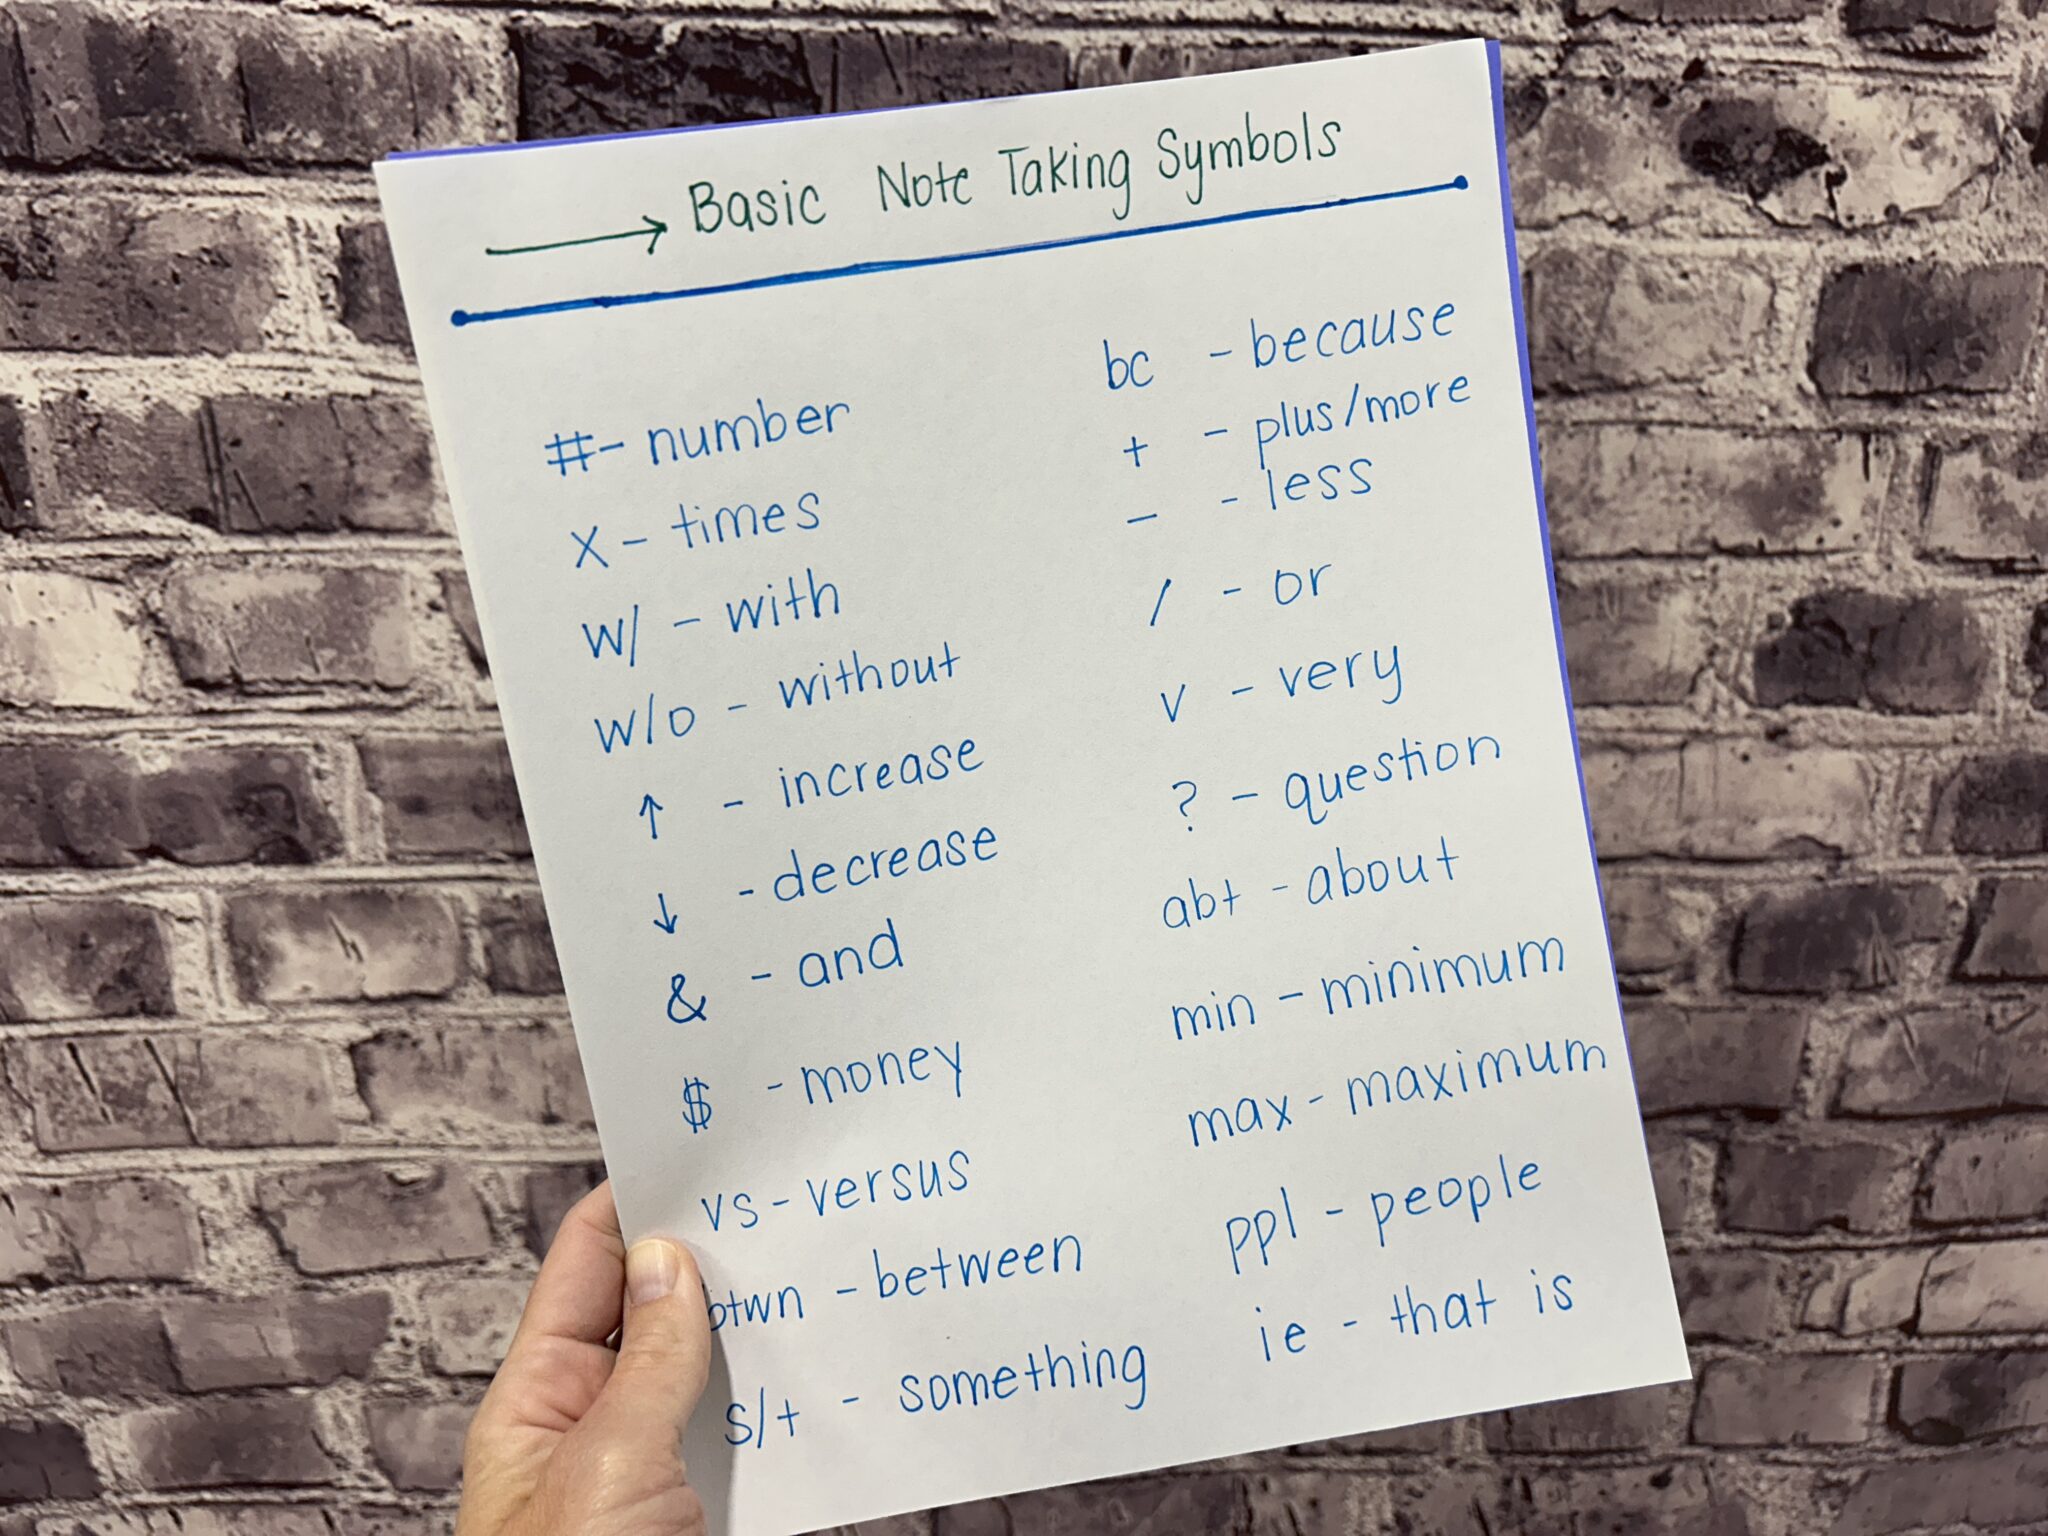 → Basic Note Taking Symbols
# - number
x - times
w/ - with
w/o - without
↑ - increase
↓ - decrease
& - and
$ - money
vs - versus
btwn - between
s/t - something
bc - because
+ - plus/more
– - less
/ - or
v - very
? - question
abt - about
min - minimum
max - maximum
ppl - people
ie - that is